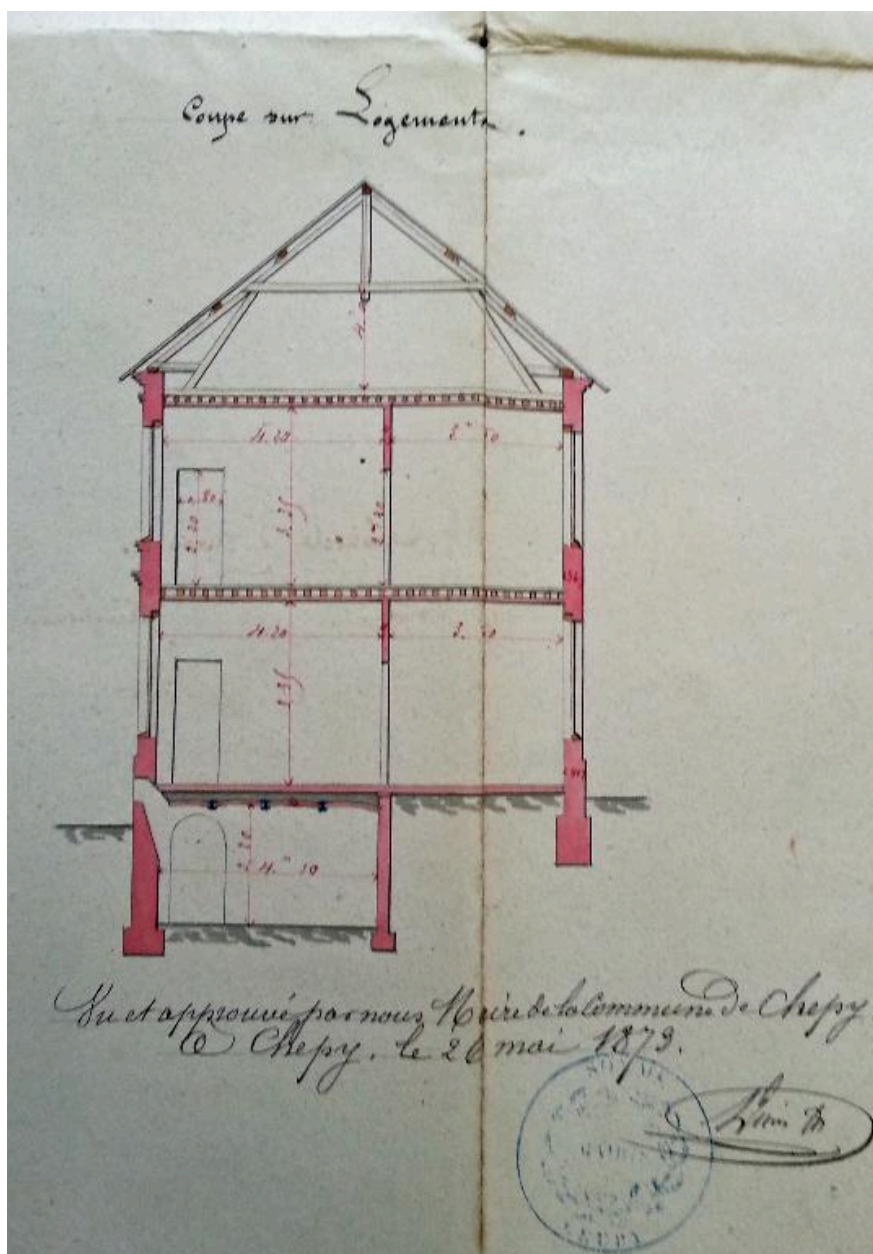 Coupe sur Logements.
4.20
80
2.20
3.25
4.20
3.25
2.20
4.m 10
Vu et approuvé par nous Maire de la Commune de Chepy
A Chepy, le 26 mai 1879.
SOMME
MAIRIE
CHEPY